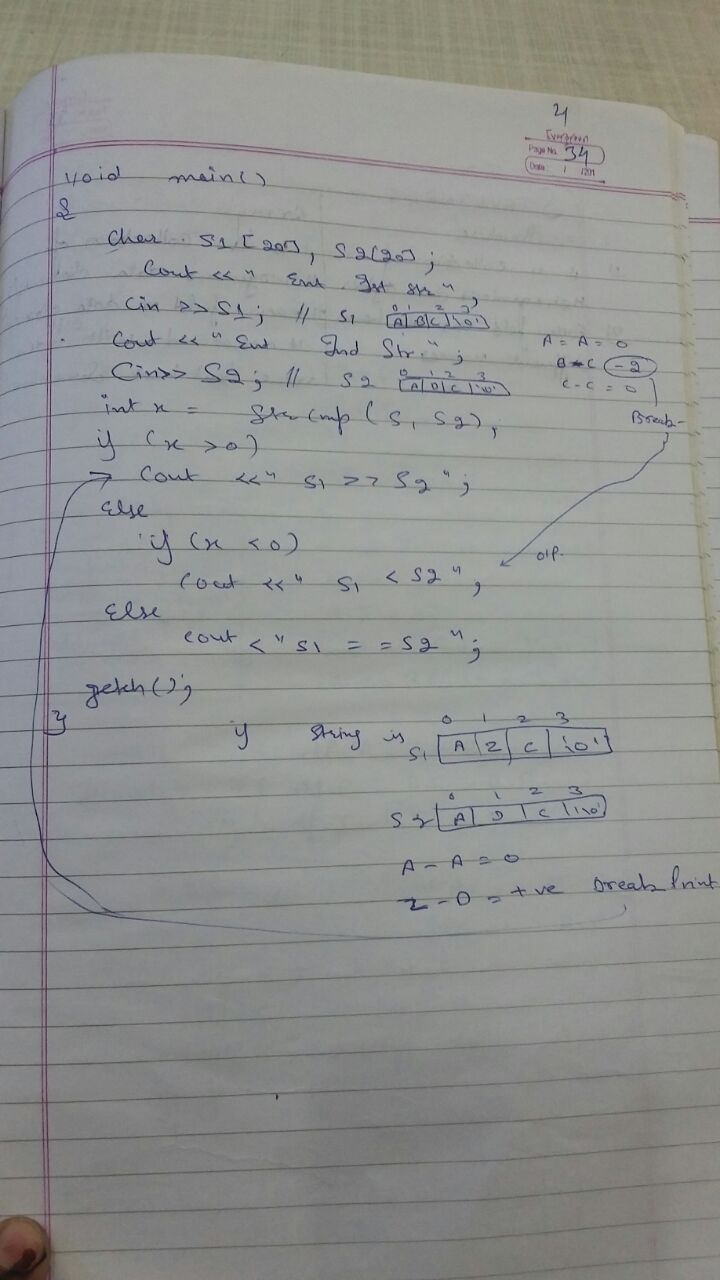 4
Evergreen
Page No. 34
Date: / /201
void main()
{
char S1[20], S2[20];
Cout << " Ent Ist str ";
Cin >> S1; // S1 0 1 2 3 A B C '\0'
Cout << " Ent IInd Str. ";
Cin >> S2; // S2 0 1 2 3 A D C '\0'
A - A = 0
B - C -2
C - C = 0
Break
int x = Strcmp(S, S2);
if (x > 0)
Cout << " S1 >> S2 ";
Else
if (x < 0)
o/p.
Cout << " S1 < S2 ";
Else
cout < " S1 = = S2 ";
getch();
}
if String is
0 1 2 3
S1 A Z C '\0'
0 1 2 3
S2 A D C '\0'
A - A = 0
Z - D = +ve break Print